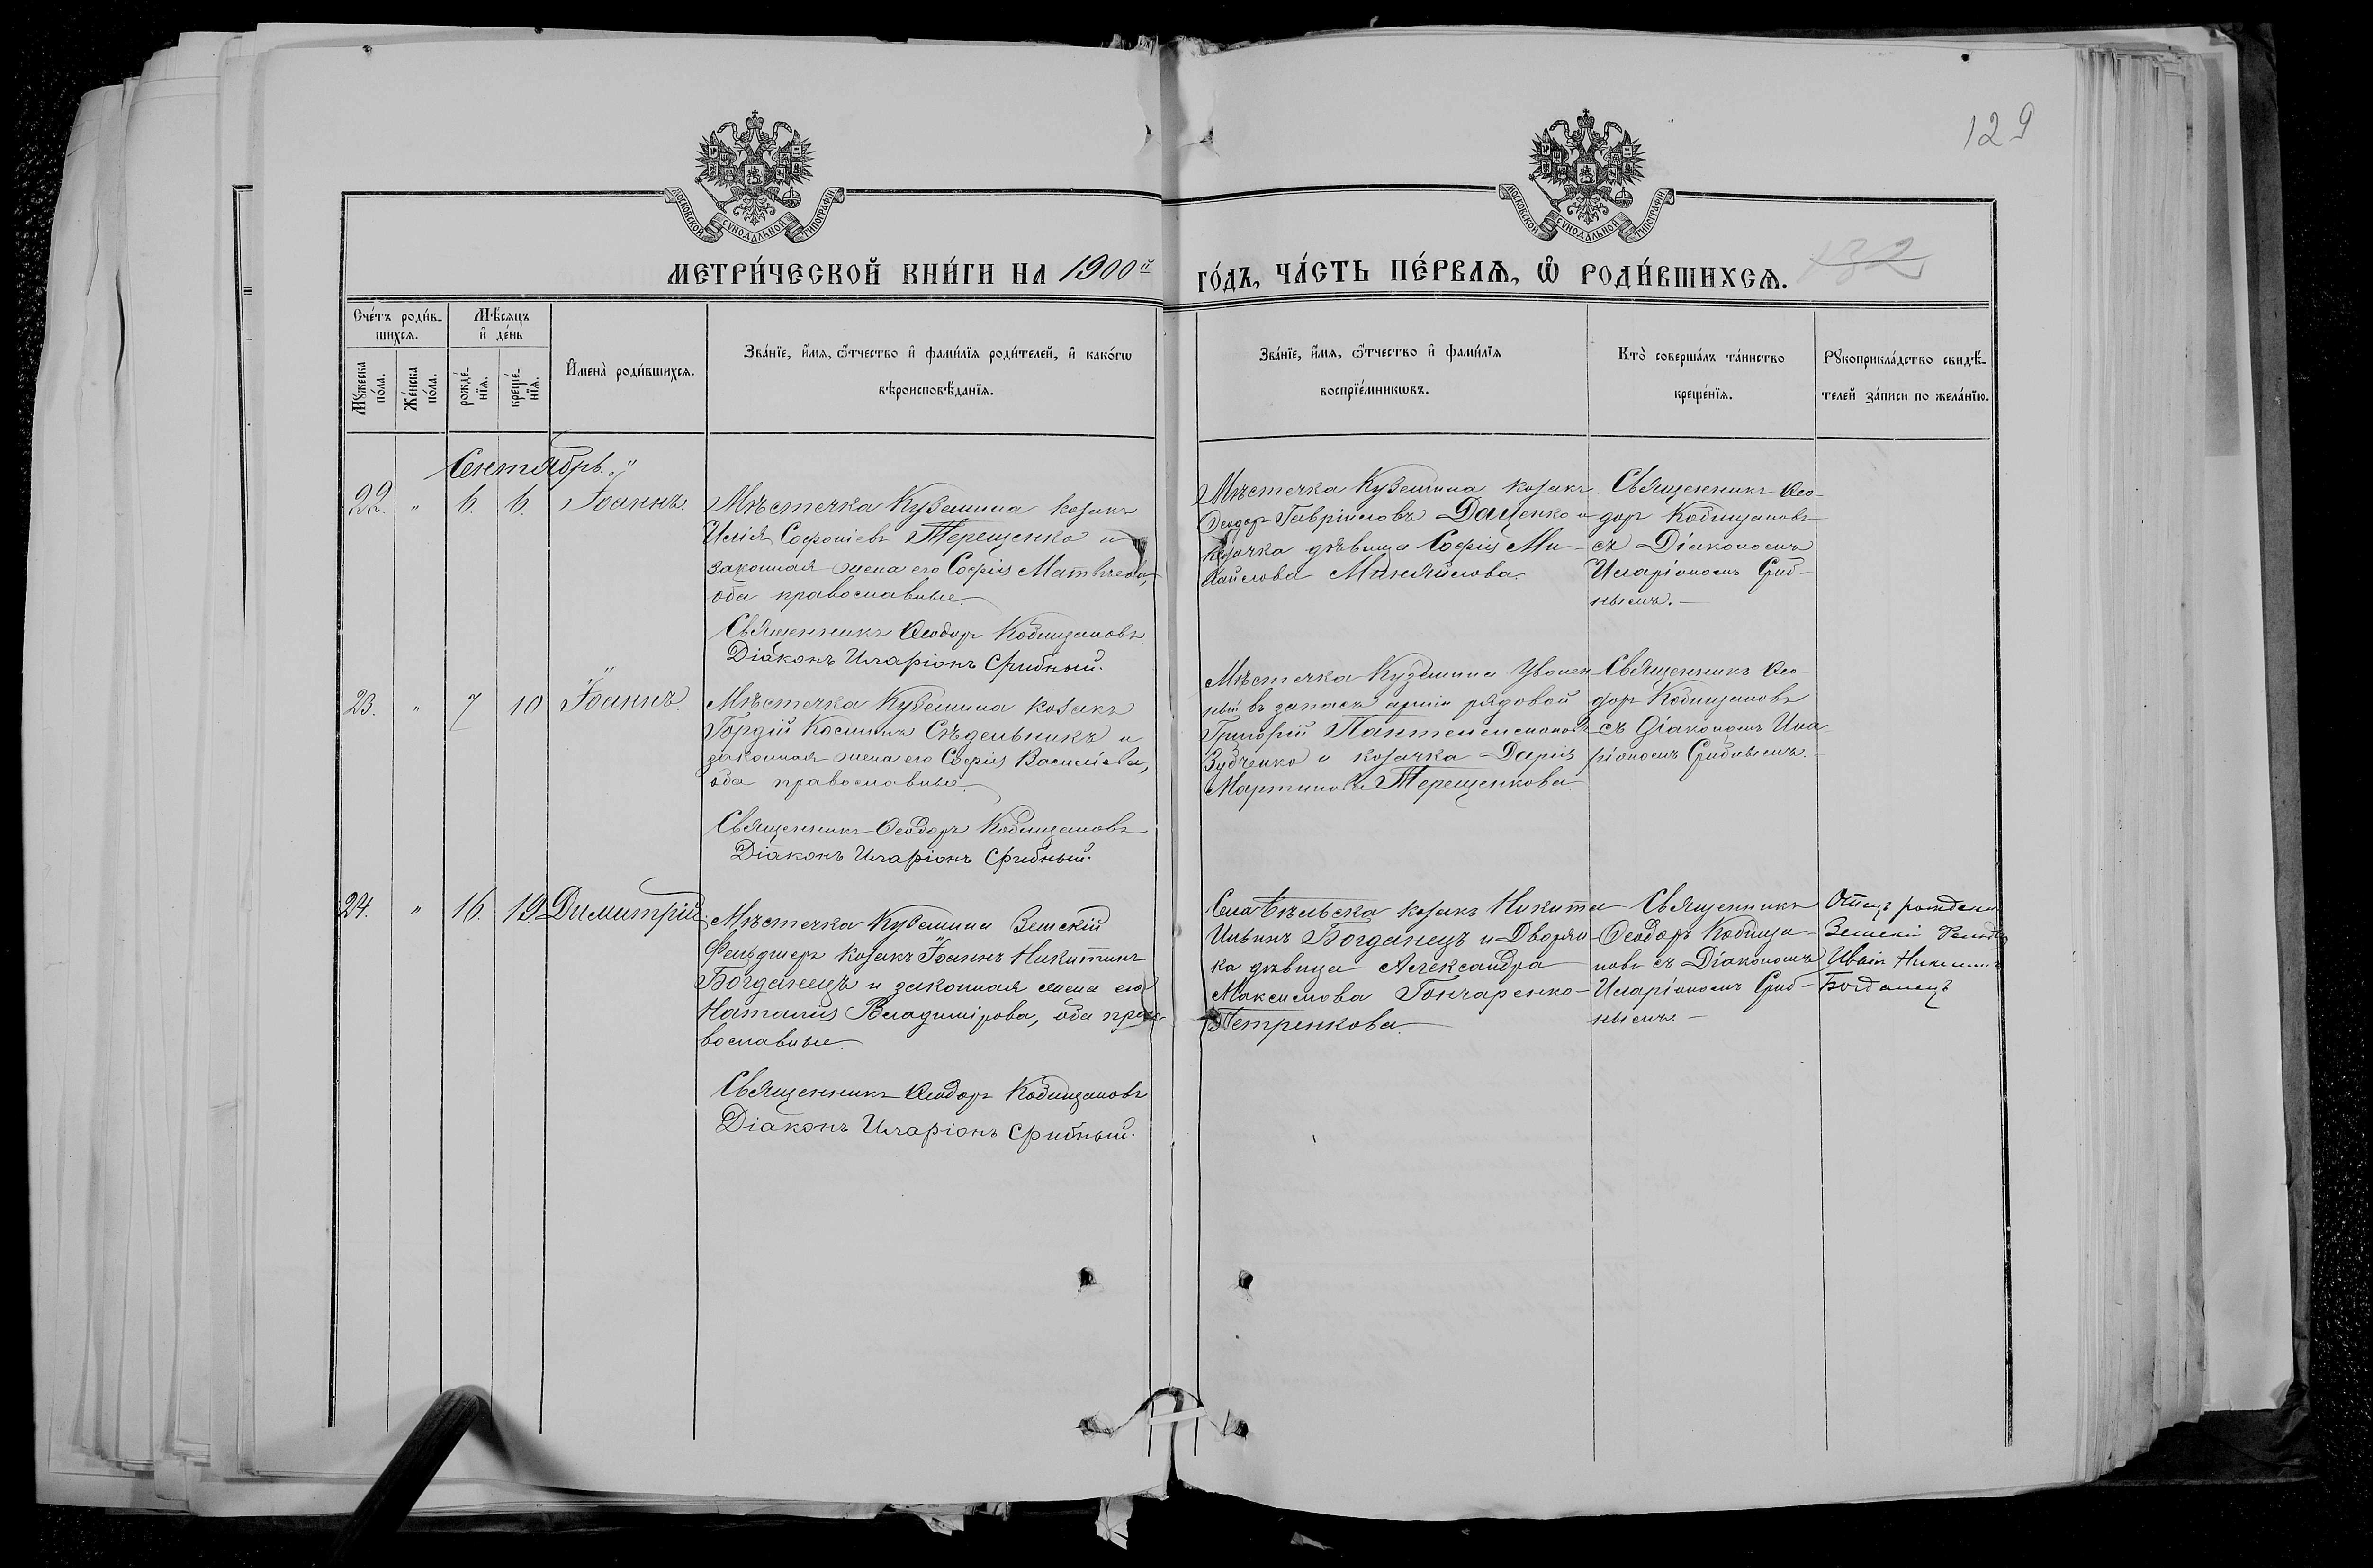 129
МОСКОВСКОЙ СУНОДАЛЬНОЙ ТИПОГРАФІИ
МОСКОВСКОЙ СУНОДАЛЬНОЙ ТИПОГРАФІИ
МЕТРИ́ЧЕСКОЙ КНИ́ГИ НА 1900й
ГО́ДЪ, ЧА́СТЬ ПЕ́РВАѦ, Ѿ РОДИ́ВШИХСѦ.
132
Сче́тъ роди́в-
шихсѧ.
Мѣ́сяцъ
и҆ де́нь
Мꙋ́жеска
по́ла.
Же́нска
по́ла.
рожде́-
нїѧ.
креще́-
нїѧ.
И҆мена̀ роди́вшихсѧ.
Зва́нїе, и҆́мѧ, ѻ҆́тчество и҆ фами́лїѧ роди́телей, и҆ како́гѡ
вѣроисповѣ́данїѧ.
Зва́нїе, и҆́мѧ, ѻ҆́тчество и҆ фами́лїѧ
воспрїе́мникѡвъ.
Кто̀ соверша́лъ та́инство
креще́нїѧ.
Рꙋкоприкла́дство свидѣ́-
телей за́писи по жела́нїю.
Сентябрь.
22. " 6. 6. Іоаннъ.
Мѣстечка Куземина козакъ
Илія Софоніевъ Терещенко и
законная жена его Софія Матвѣева,
оба православные.
Священникъ Ѳеодоръ Кобищановъ
Діаконъ Иларіонъ Срибный.
Мѣстечка Куземина козакъ
Ѳеодоръ Гавріиловъ Даценко и
козачка дѣвица Софія Ми-
хайлова
Священникъ Ѳео-
доръ Кобищановъ
съ Діакономъ
Иларіономъ Сриб-
нымъ.
23. " 7 10 Іоаннъ.
Мѣстечка Куземина козакъ
Гордій Косминъ Сѣдельникъ и
законная жена его Софія Василіева,
оба православные.
Священникъ Ѳеодоръ Кобищановъ
Діаконъ Иларіонъ Срибный.
Мѣстечка Куземина Уволен
ный въ запасъ арміи рядовой
Григорій Пантелеимоновъ
Зубченко и козачка Дарія
Мартинова Терещенкова
Священникъ Ѳео
доръ Кобищановъ
съ Діакономъ Ила
ріономъ Срибнымъ.
24. " 16. 19. Димитрій.
Мѣстечка Куземина Земскій
Фельдшеръ козакъ Іоаннъ Никитинъ
Богданецъ и законная жена его
Наталія Владимірова, оба пра-
вославные.
Священникъ Ѳеодоръ Кобищановъ
Діаконъ Иларіонъ Срибный.
Села Бѣльска козакъ Никита
Ильинъ Богданецъ и Дворян
ка дѣвица Александра
Максимова Гончаренко-
Петренкова.
Священникъ
Ѳеодоръ Кобища-
новъ съ Діакономъ
Иларіономъ Сриб-
нымъ.
Отецъ
Земскій
Иванъ Никитинъ
Богданецъ